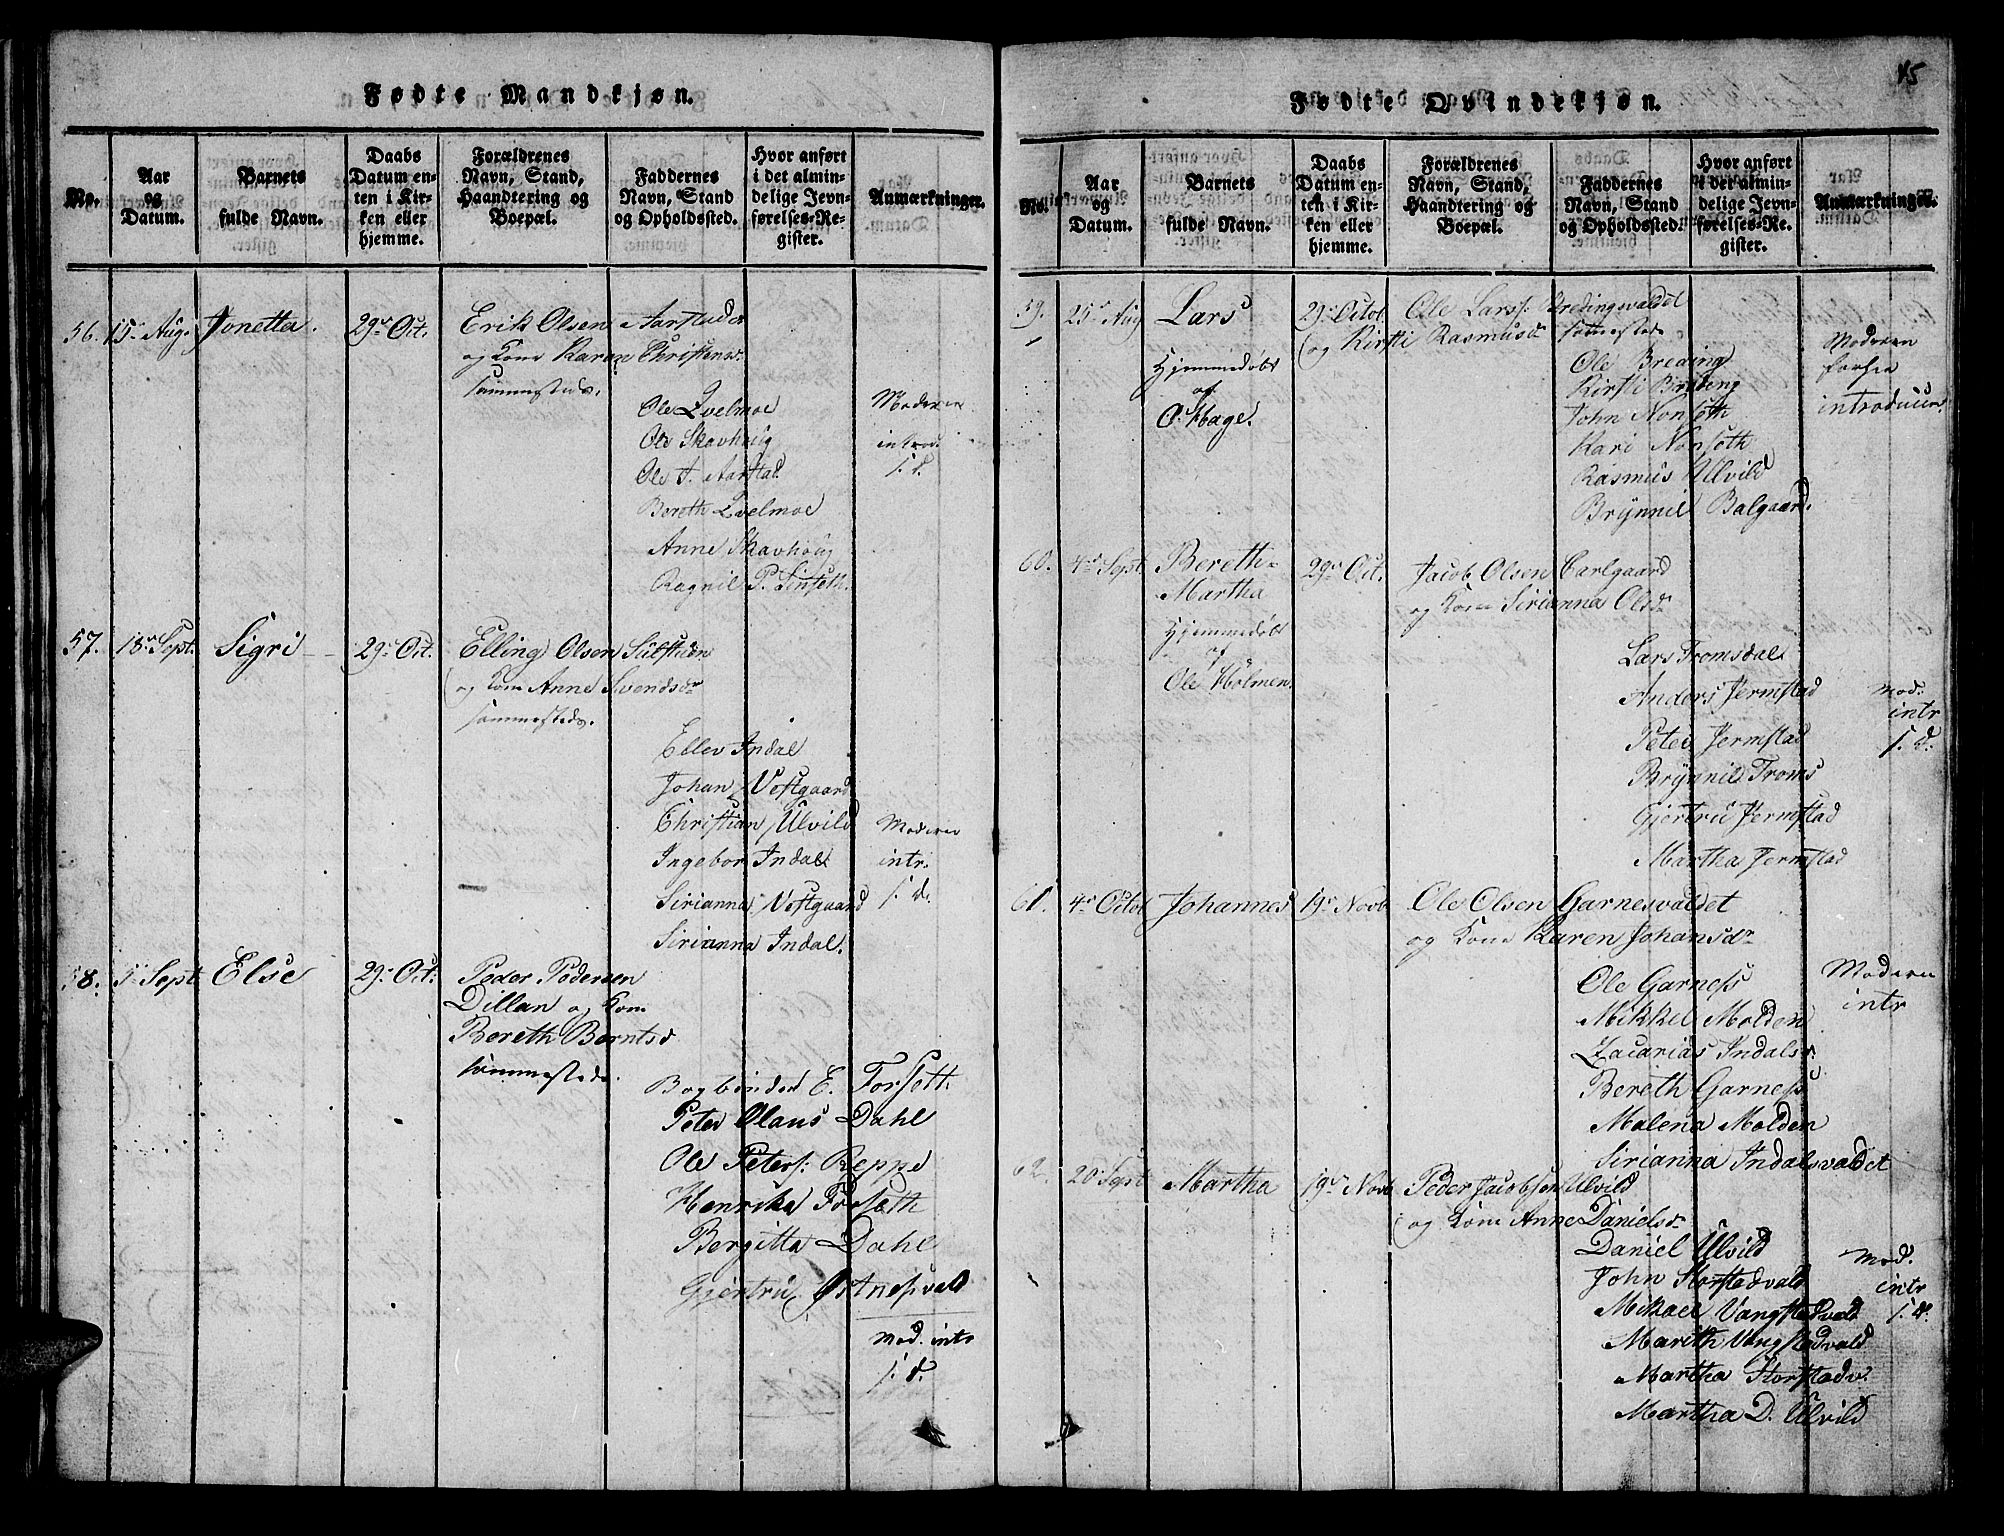 Fødte Mandkjøn.
No.
Aar
og
Datum.
Barnets
fulde Navn.
Daabs
Datum en-
ten i Kir-
ken eller
hjemme.
Forældrenes
Navn, Stand,
Haandtering og
Boepæl.
Faddernes
Navn, Stand
og Opholdssted.
Hvor anført
i det almin-
delige Jevn-
førelses-Re-
gister.
Anmærkninger.
56. 15de Aug. Jonetta. 29de Oct. Erik Olsen Aarstad
og Kone Karen Christensd.
sammesteds.
Ole Qvelmoe
Ole Skavhoug
Ole J. Aarstad
Bereth Qvelmoe
Anne Skavhoug
Ragnil P. Linseth.
Moderen
introd.
s. d.
57. 18de Sept. Sigri 29de Oct. Elling Olsen Sulstuen
og Kone Anne Svendsdr
sammesteds.
Ellev Indal
Johan Vostgaard
Christian Ulvild
Ingebor Indal
Sirianna Vostgaard
Sirianna Indal.
Moderen
intr.
s. d.
58. 5de Sept Else 29de Oct. Peder Pedersen
Dillan og Kone
Bereth Berntsd
sammesteds.
Bogbinder E. Forseth
Peter Olaus Dahl
Ole Peters: Reppe
Henrika Forseth
Bergitta Dahl
Gjertru Østnesvald
Mod. intr
s. d.
45
Fødte Qvindekjøn.
No.
Aar
og
Datum.
Barnets
fulde Navn.
Daabs
Datum en-
ten i Kir-
ken eller
hjemme.
Forældrenes
Navn, Stand,
Haandtering og
Boepæl.
Faddernes
Navn, Stand
og Opholdssted.
Hvor anført
i det almin-
delige Jevn-
førelses-Re-
gister.
Anmærkninger.
59. 25de Aug Lars 29de Octob Ole Larss: Bredingsvaldet
og Kirsti Rasmusdr sammesteds
Hjemmedøbt
af
O. Hage.
Ole Breding
Kirsti Breding
John Nonseth
Kari Nonseth
Rasmus Ulvild
Brynnil Balgaard.
Moderen
introducer.
60. 4de Sept. Bereth-
Martha
29de Oct. Jacob Olsen Carlgaard
og Kone Sirianna Olsdr
Hjemmedøbt
af
Ole Holmen.
Lars Tromsdal
Anders Jermstad
Peter Jermstad
Brynnil Troms
Gjertru Jermstad
Martha Jermstad
Mod.
intr
s. d.
61. 4de Octob Johannes 19de Novb Ole Olsen Garnesvaldet
og Kone Karen Johansdr
Ole Garness
Mikkel Molden
Zacarias Indalsv.
Bereth Garness
Malena Molden
Sirianna Indalsvaldet
Moderen
intr
62. 20de Sept Martha 19de Novb Peder Jacobsen Ulvild
og Kone Anne Danielsdr
Daniel Ulvild
John Storstadvald
Mikael Vangstadvald
Marith Vangstadvald
Martha Storstadv.
Martha D. Ulvild
Mod.
intr
s. d.